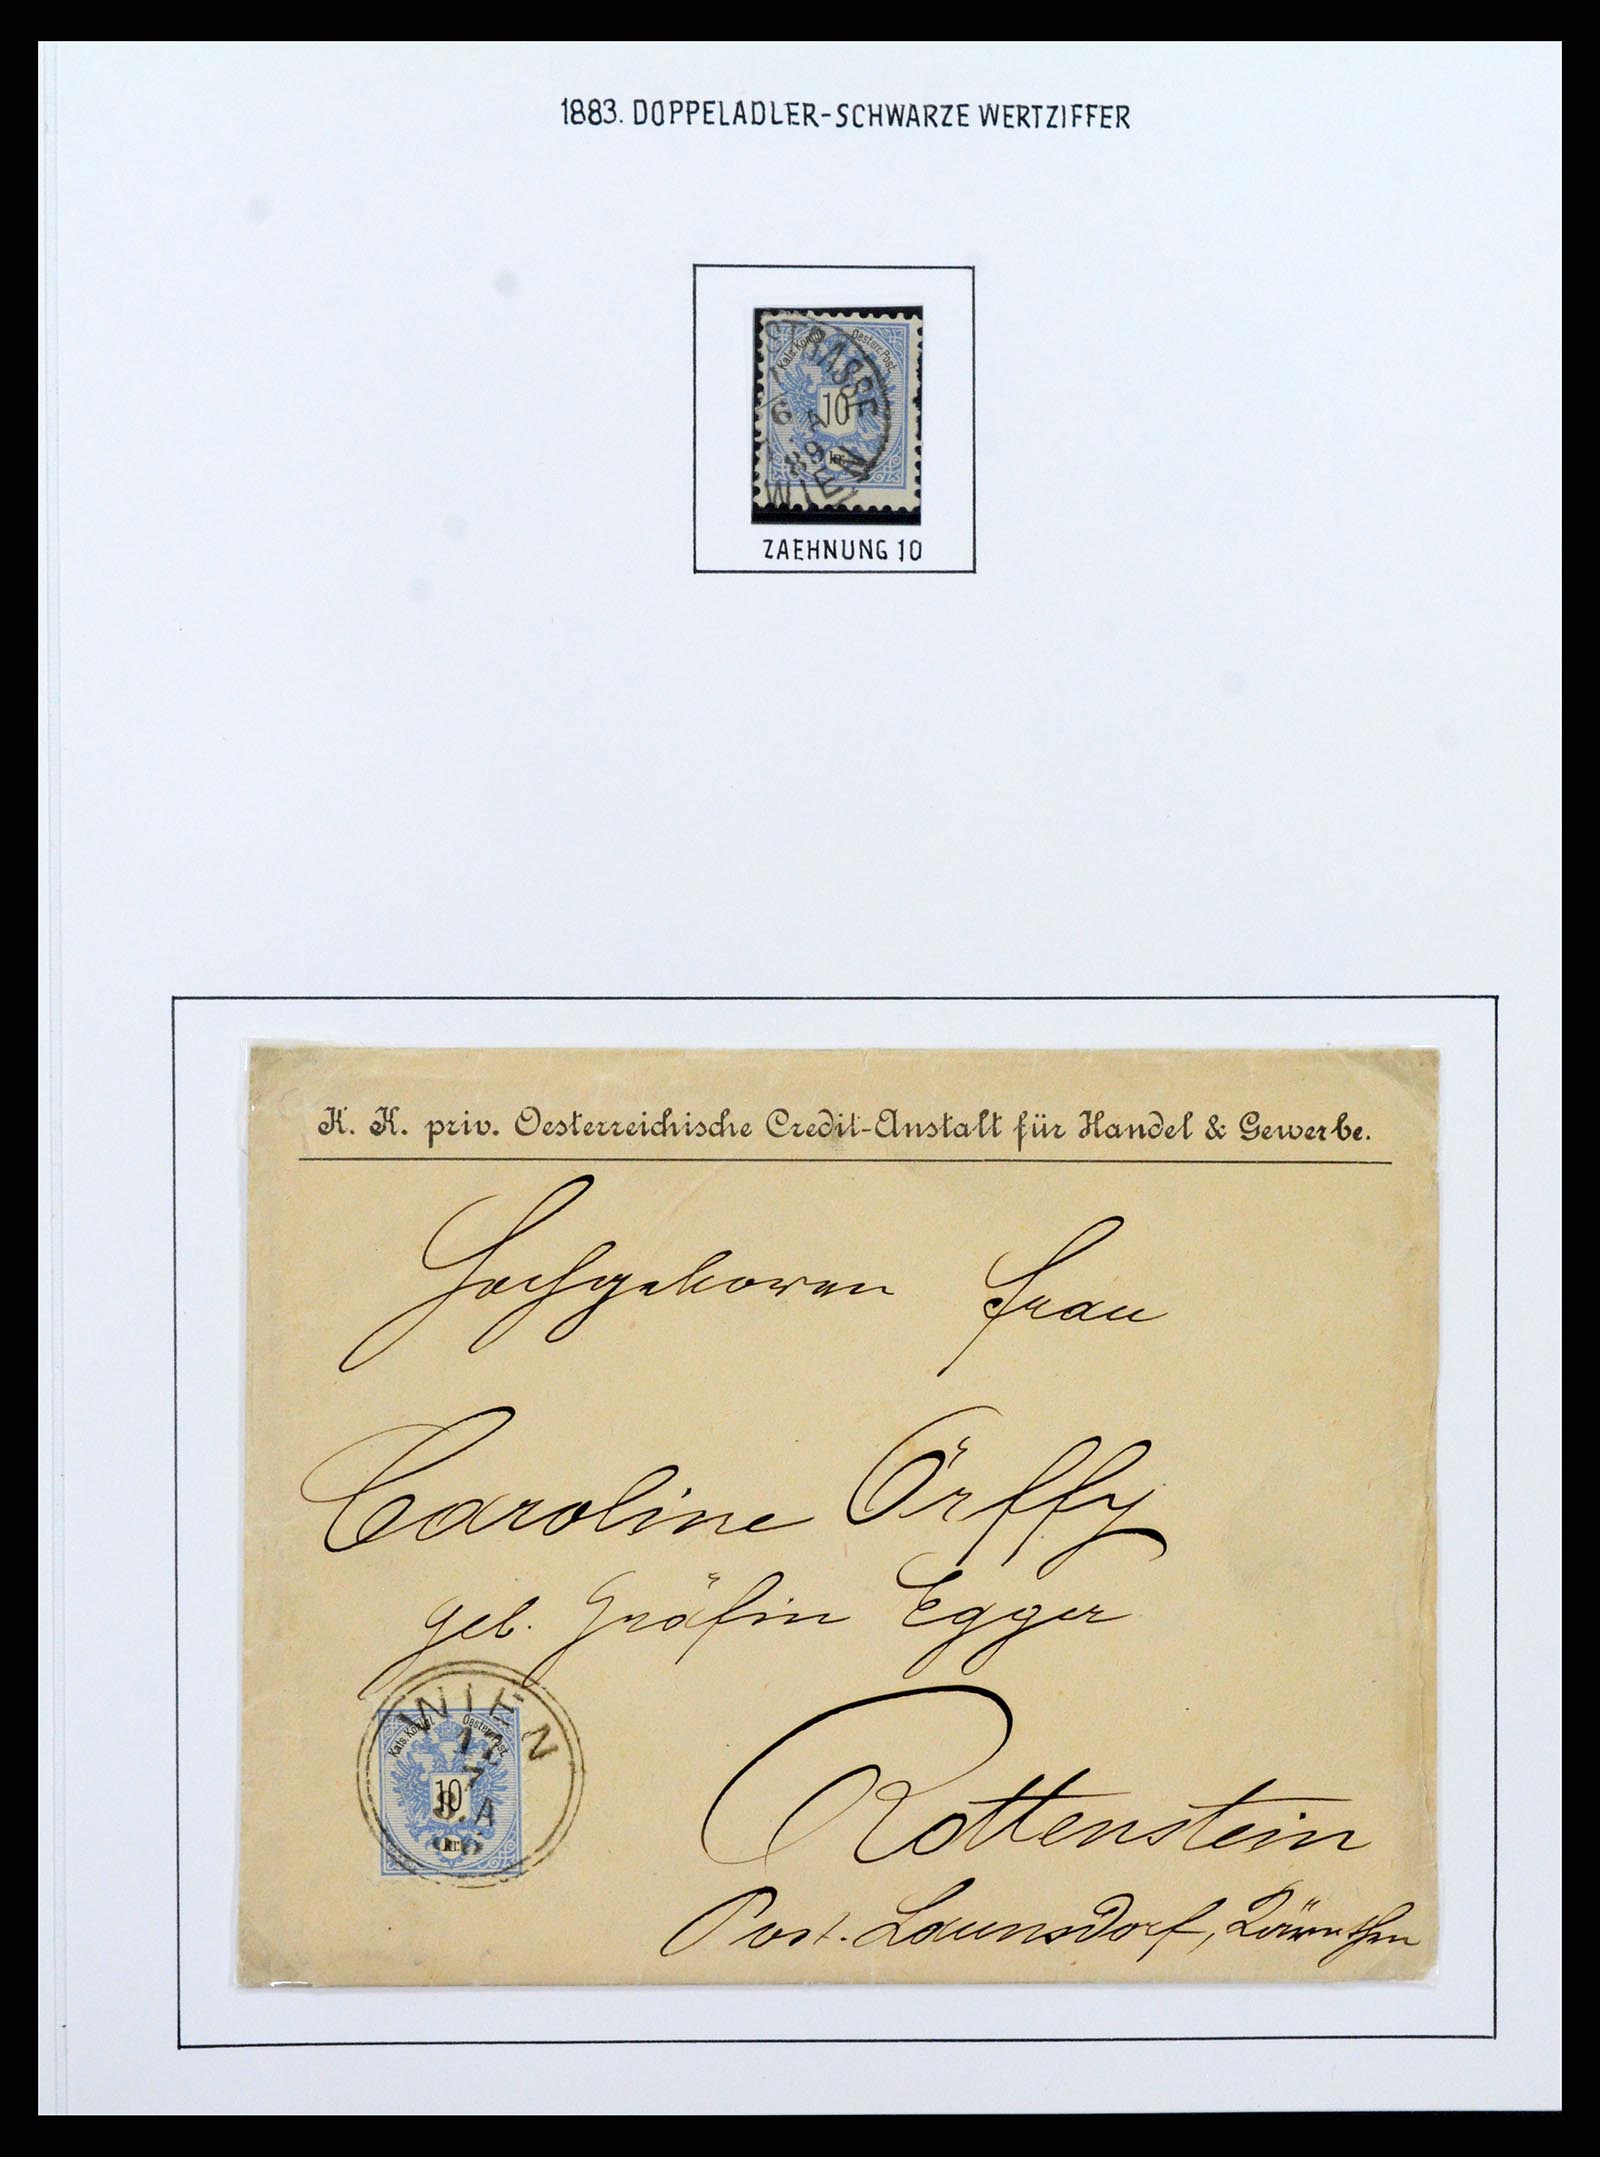 1883. DOPPELADLER-SCHWARZE WERTZIFFER
Kais. Königl. Oesterr. Post.
STRASSE
6 A
89
10
kr.
WIEN
ZAEHNUNG 10
K. K. priv. Oesterreichische Credit-Anstalt für Handel & Gewerbe.
Hochgeboren Frau
Caroline Örffy
geb. Gräfin Egger
WIEN
Kais. Königl. Oesterr. Post.
7
10
8. A
kr.
Rottenstein
Post. Launsdorf, Kärnthen